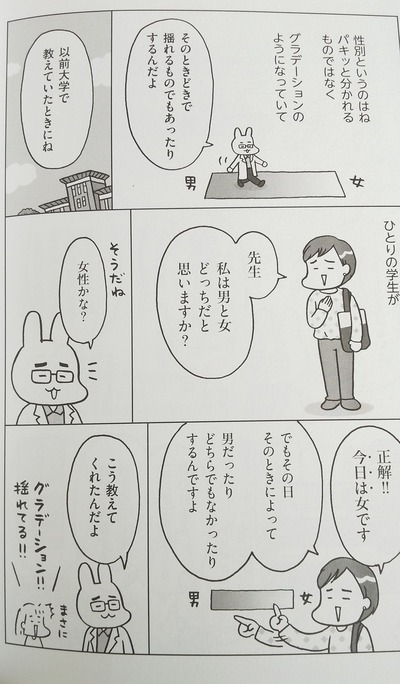 性別というのはね
パキッと分かれる
ものではなく
グラデーションの
ようになっていて
そのときどきで
揺れるものでもあったり
するんだよ
男
女
以前大学で
教えていたときにね
ひとりの学生が
先生
私は男と女
どっちだと
思いますか?
そうだね
女性かな?
正解!!
今日は女です
でもその日
そのときによって
男だったり
どちらでもなかったり
するんですよ
男
女
こう教えて
くれたんだよ
グラデーション!!
揺れてる!!
まさに